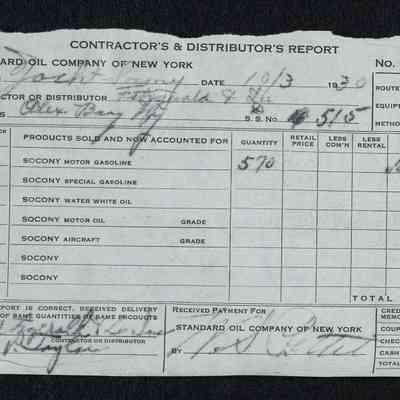 CONTRACTOR'S & DISTRIBUTOR'S REPORT
DARD OIL COMPANY OF NEW YORK No.
Yacht DATE 10/3 1930 ROUTE
CTOR OR DISTRIBUTOR Fitzgerald & Lee EQUIP
S Alex Bay NY S. S. No. 515 METHO
PRODUCTS SOLD AND NOW ACCOUNTED FOR QUANTITY RETAIL PRICE LESS COM'N LESS RENTAL
SOCONY MOTOR GASOLINE 570
SOCONY SPECIAL GASOLINE
SOCONY WATER WHITE OIL
SOCONY MOTOR OIL GRADE
SOCONY AIRCRAFT GRADE
SOCONY
SOCONY
TOTAL
PORT IS CORRECT, RECEIVED DELIVERY
OF SAME QUANTITIES OF SAME PRODUCTS
Fitzgerald & Lee Inc
CONTRACTOR OR DISTRIBUTOR
RECEIVED PAYMENT FOR
STANDARD OIL COMPANY OF NEW YORK
BY
CREDI
MEMO
COUPO
CHEC
CASH
TOTAL